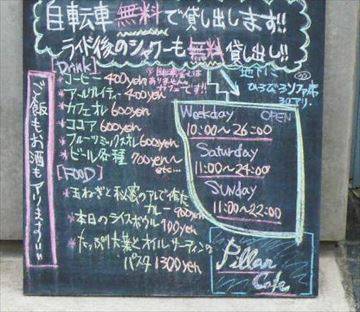 自転車 無料で貸し出します!!
ライド後のシャワーも無料貸し出し!!
[Drink]
コーヒー 400yen
アールグレイティー 400yen
カフェオレ 600yen
ココア 600yen
フルーツミックスオレ 600yen
ビール各種 700yen〜
etc...
ありません
カフェです!!
地下に
ひろびろソファ席
30アリ.
ご飯もお酒もアリます!!
Weekday OPEN
10:00〜26:00
Saturday
11:00〜24:00
Sunday
11:00〜22:00
[FOOD]
玉ねぎと秘密のアレで作た
カレー 900yen
本日のライスボウル 900yen
たっぷり大葉とオイルサーディンの
パスタ 1300yen
Pillar
Cafe